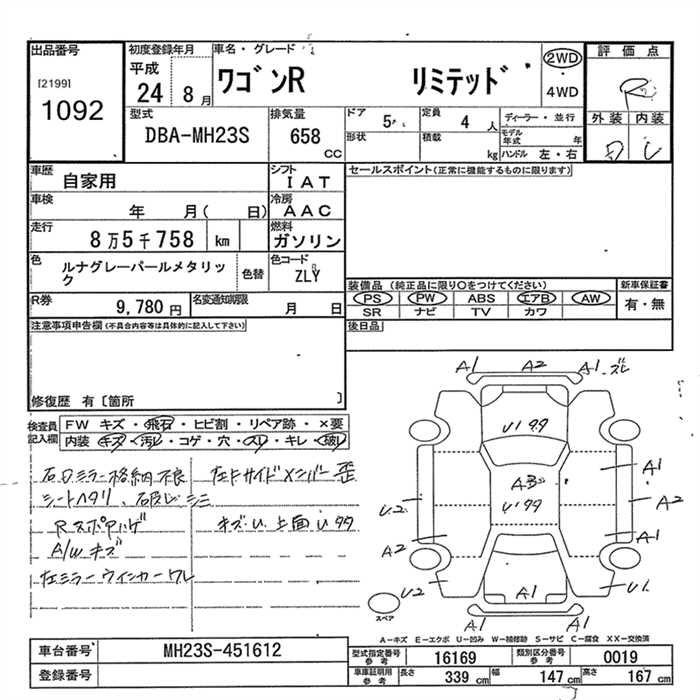 出品番号 初度登録年月 車名・グレード 評価点
[2199] 平成 ワゴンR リミテッド 2WD R
1092 24 8月 4WD
外装 内装
型式 排気量 ドア 5 定員 4人 ディーラー・並行
DBA-MH23S 658cc 形状 積載 kg モデル年式 年
ハンドル 左・右
車歴 自家用 シフト IAT セールスポイント(正常に機能するものに限ります)
車検 年 月( 日) 冷房 AAC
走行 8万5千758 km 燃料 ガソリン
色 ルナグレーパールメタリック 色替 色コード ZLY
装備品 (純正品に限り○をつけてください) 新車保証書
PS PW ABS エアB AW 有・無
SR ナビ TV カワ
R券 9,780円 名変通知期限 月 日
後日品
注意事項申告欄(不具合内容等は具体的に記入して下さい)
修復歴 有〔箇所 〕
検査員記入欄 FW キズ・飛石・ヒビ割・リペア跡・×要
内装 キズ・汚レ・コゲ・穴・スレ・キレ・破レ
右Dミラー格納不良
シートヘタリ、破レ シミ
A/W キズ
左ミラーウインカーワレ
左サイドメンバー歪
キズU 上面U
A1 A2 A1 ズレ
U1
AB
U1
A1
U2 A2
A2 A1
U2 A1 U1
A1 A1
スペア
A-キズ E-エクボ U-凹み W-補修跡 S-サビ C-腐食 XX-交換済
車台番号 MH23S-451612
登録番号
型式指定番号 参考 16169 類別区分番号 参考 0019
車庫証明用 参考 長さ 339cm 幅 147cm 高さ 167cm